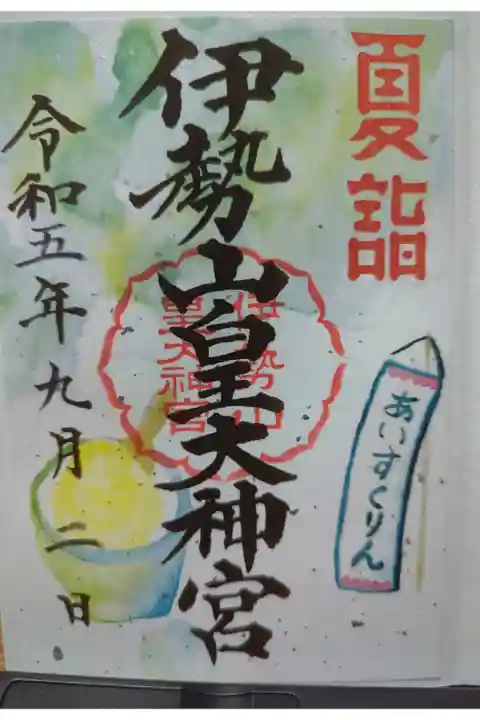 夏詣
伊勢山皇大神宮
伊勢山
皇大神宮
あいすくりん
令和五年九月二日